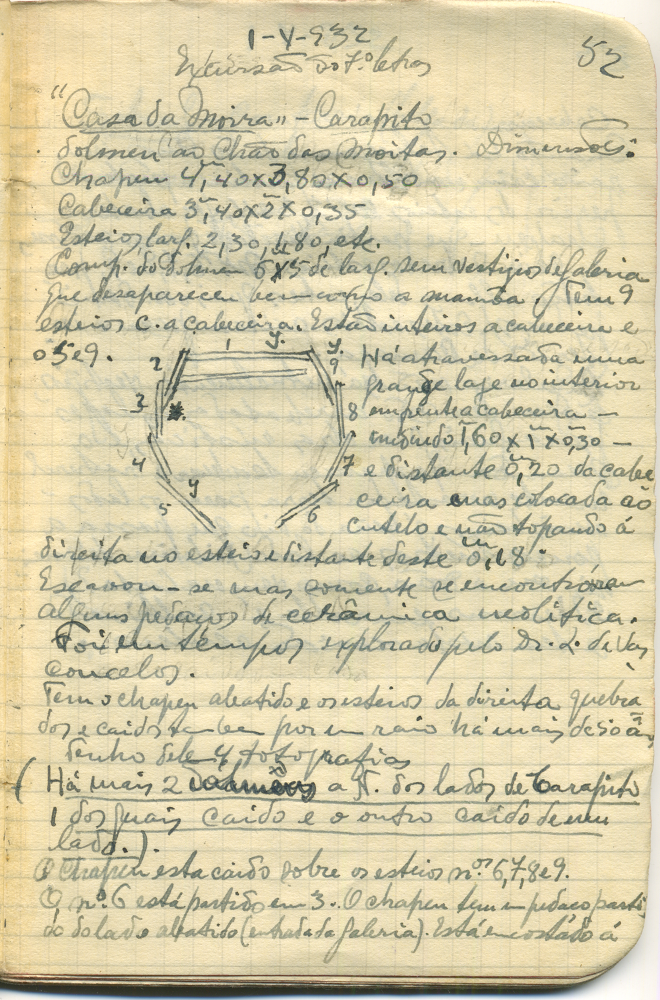 1-V-932
52
Excursão do 7.º letras
"Casa da Moira" - Carapito
dolmen ao Chão das Moitas. Dimensões:
Chapeu 4,m40x3,m80x0,50
Cabeceira 3,m40x2mx0,35
Esteios larg. 2,30, 1,80, etc.
Comp. do dolmen 6x5 de larg. sem vestigios de galeria
que desapareceu bem como a mamôa. Tem 9
esteios c. a cabeceira. Estão inteiros a cabeceira e
o 5 e 9.
1 y. y.
2 9
3 8
4 y 7
5 6
Há atravessada uma
grande laje no interior
em frente a cabeceira -
medindo 1,m60 x 1m x 0,m30 -
e distante 0,m20 da cabe
ceira mas colocada ao
cutelo e não topando á
direita no esteio e distante deste 0,m18.
Escavou-se mas somente se encontráram
alguns pedaços de cerâmica neolitica.
Foi em tempos explorado pelo Dr. L. de Vas
concelos.
Tem o chapeu abatido e os esteios da direita quebra
dos e caidos tambem por um raio há mais de 50 ãs
Tenho dele 4 fotografias
(Há mais 2 dolmens a N. dos lados de Carapito
1 dos quais caido e o outro caido de um
lado.).
O Chapeu esta caido sobre os esteios n.os 6,7,8 e 9.
O n.º 6 está partido em 3. O chapeu tem um pedaço parti
do do lado abatido (entrada da galeria). Está encostado á